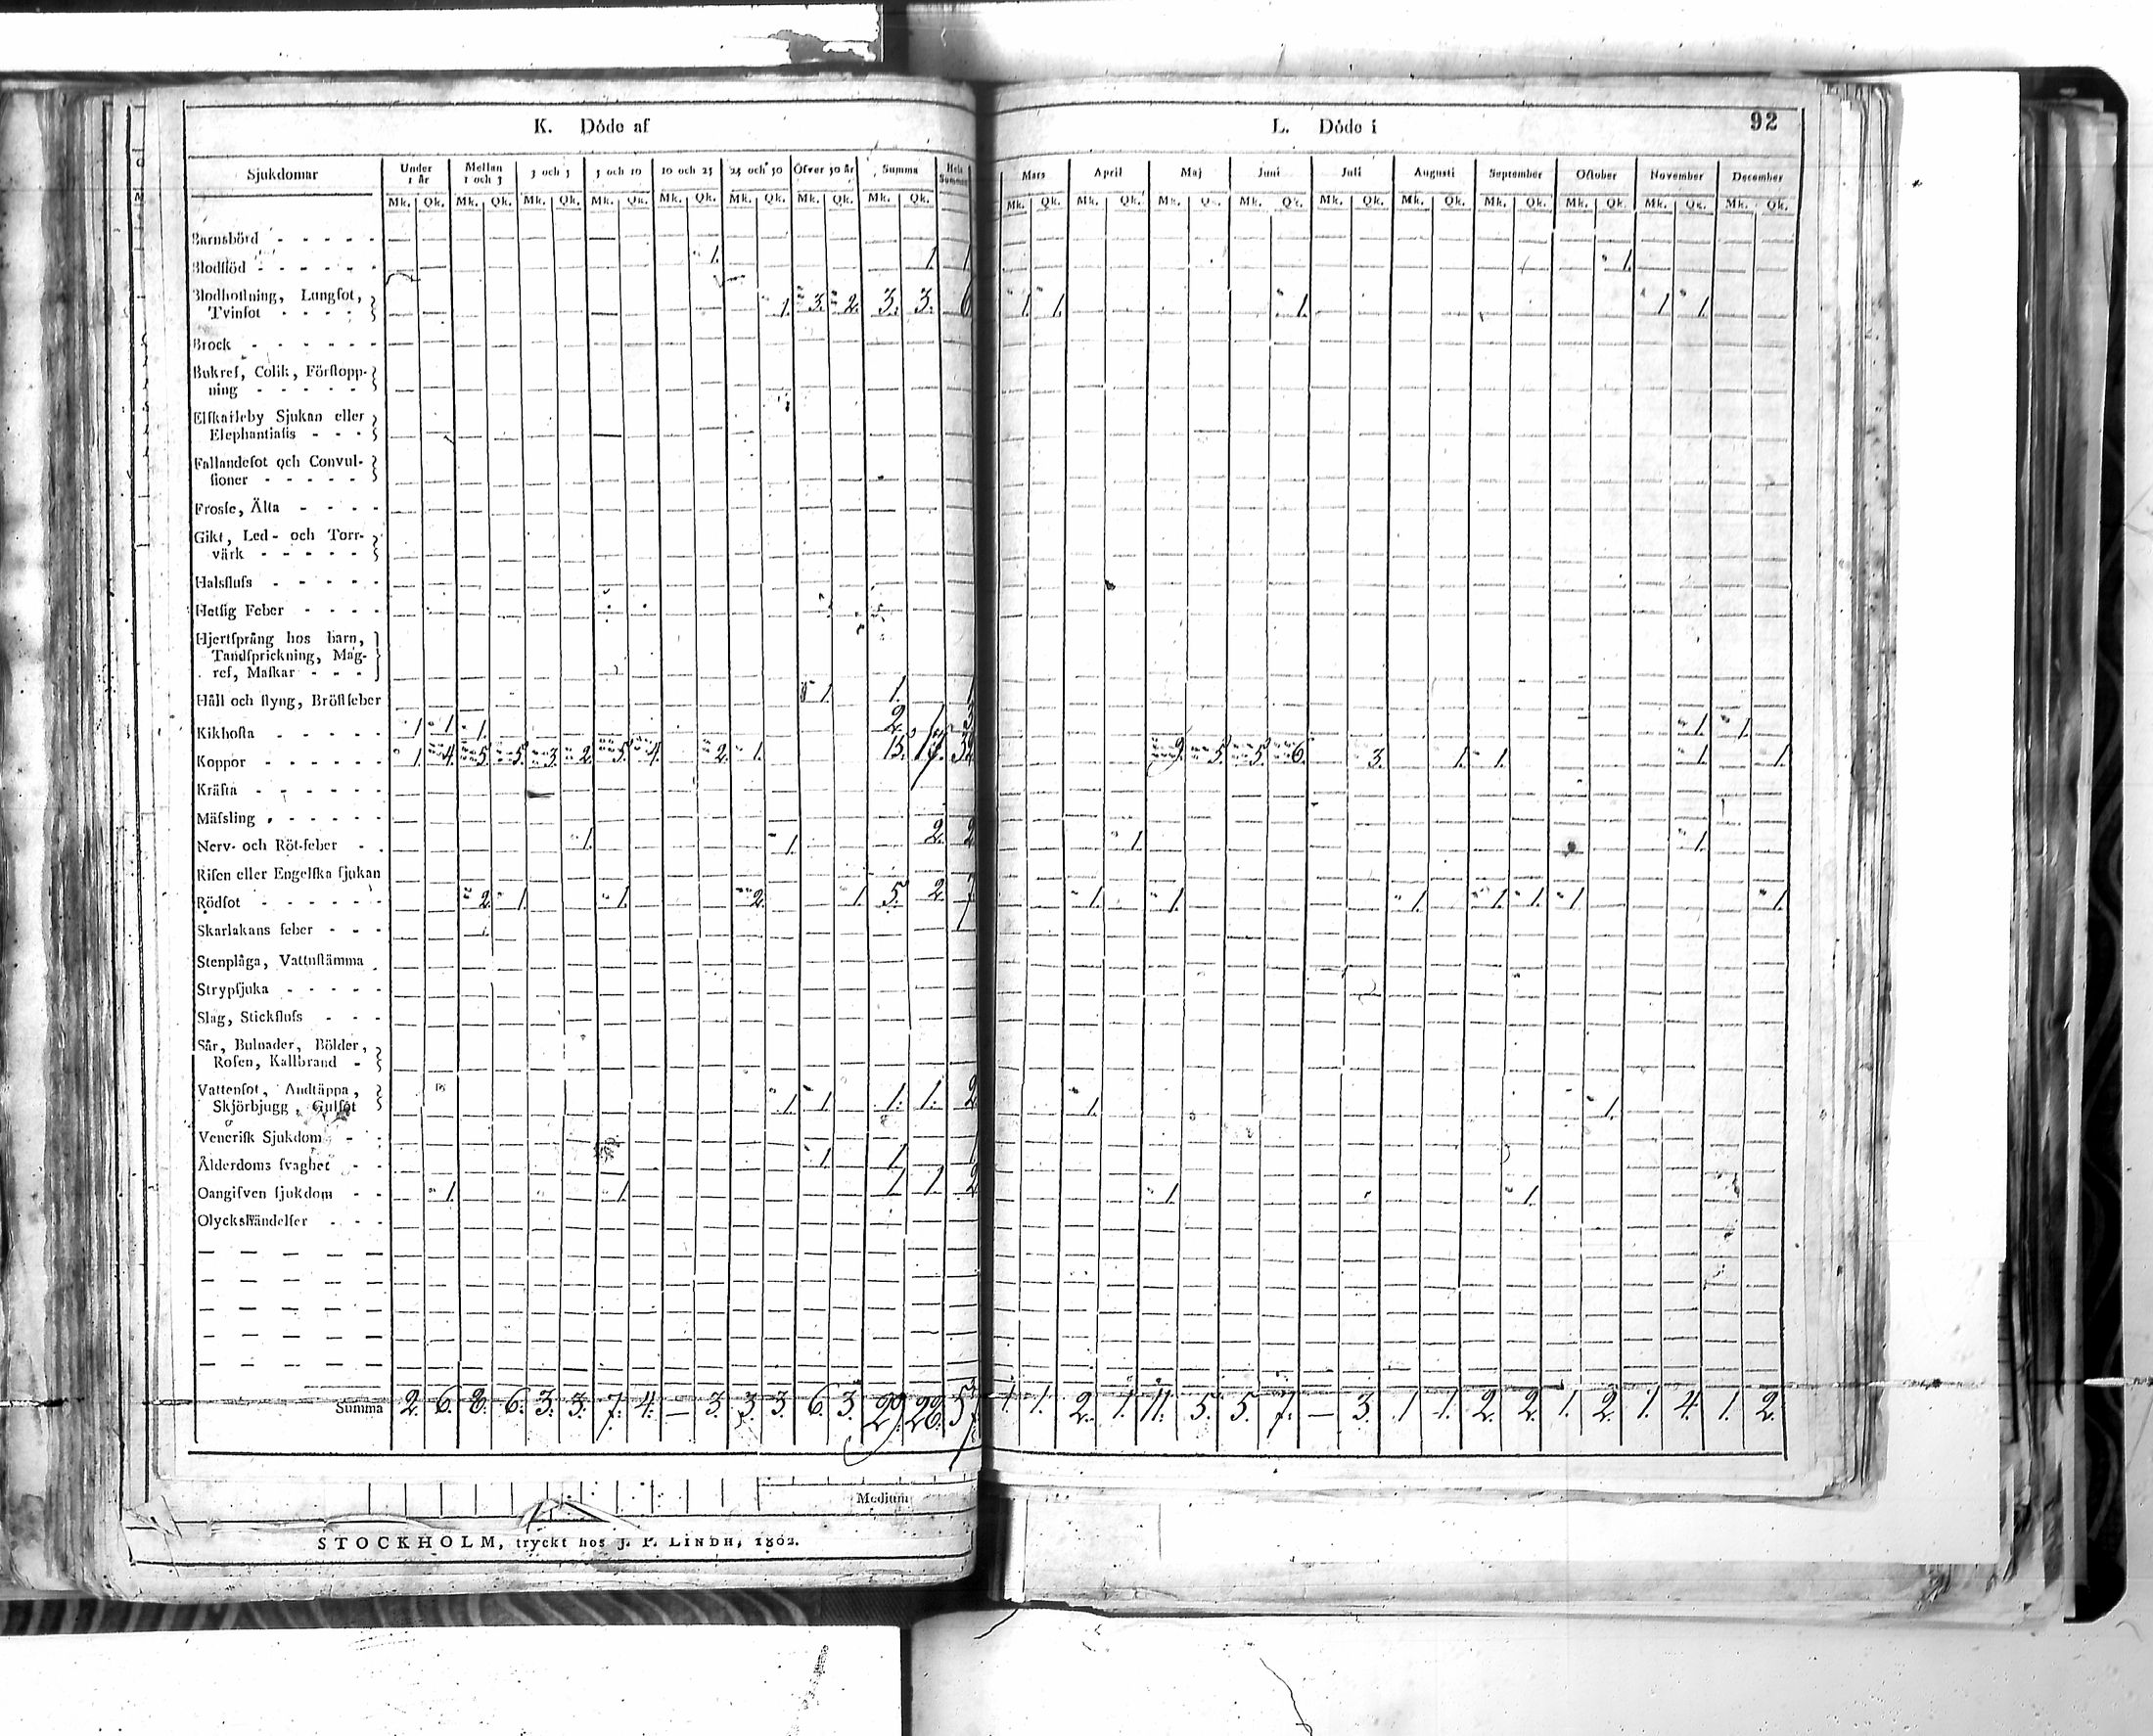 K. Döde af
Sjukdomar
Under 1 år
Mellan 1 och 3
3 och 5
5 och 10
10 och 25
25 och 50
Öfver 50 år
Summa
Hela Summan
Mk. Qk. Mk. Qk. Mk. Qk. Mk. Qk. Mk. Qk. Mk. Qk. Mk. Qk. Mk. Qk.
Barnsbörd
Blodflöd 1. 1. 1
Blodhoſtning, Lungſot,
Tvinſot 1. 3. 2. 3. 3. 6
Brock
Bukreſ, Colik, Förſtopp-
ning
Elſkarleby Sjukan eller
Elephantiaſis
Fallandeſot och Convul-
ſioner
Frosſe, Älta
Gikt, Led- och Torr-
värk
Halsfluſs
Hetſig Feber
Hjertſprång hos barn,
Tandſprickning, Mag-
reſ, Maſkar
Håll och ſtyng, Bröſtfeber 1. 1. 1
Kikhoſta 1 1 1. 2. 1 3
Koppor 1. 4. 5. 5. 3. 2. 5. 4. 2. 1. 15. 17. 32
Kräſta
Mäſsling
Nerv- och Röt-feber 1. 1. 2. 2
Riſen eller Engelſka ſjukan
Rödſot 2. 1. 1. 2. 1 5. 2. 7
Skarlakans feber
Stenplåga, Vattuſtämma
Strypſjuka
Slag, Stickfluſs
Sår, Bulnader, Bölder,
Roſen, Kallbrand
Vattenſot, Andtäppa,
Skjörbjugg, Gulſot 1. 1. 1. 1. 2
Veneriſk Sjukdom
Ålderdoms ſvaghet 1 1 1
Oangifven ſjukdom 1. 1 1 1. 2
Olyckshändelſer
Summa 2. 6. 8. 6. 3. 3. 7. 4. — 3. 3. 3. 6. 3. 29. 28. 57
Medium
STOCKHOLM, tryckt hos J. P. LINDH, 1802.
L. Döde i
92
Mars April Maj Juni Juli Augusti September October November December
Mk. Qk. Mk. Qk. Mk. Qk. Mk. Qk. Mk. Qk. Mk. Qk. Mk. Qk. Mk. Qk. Mk. Qk. Mk. Qk.
1.
1. 1. 1. 1 1.
1. 1.
9. 5. 5. 6. 3. 1. 1. 1. 1.
1. 1.
1. 1. 1. 1. 1. 1. 1.
1. 1.
1 1.
1 1. 2. 1. 11. 5. 5. 7. — 3. 1 1. 2. 2. 1. 2. 1. 4. 1. 2.